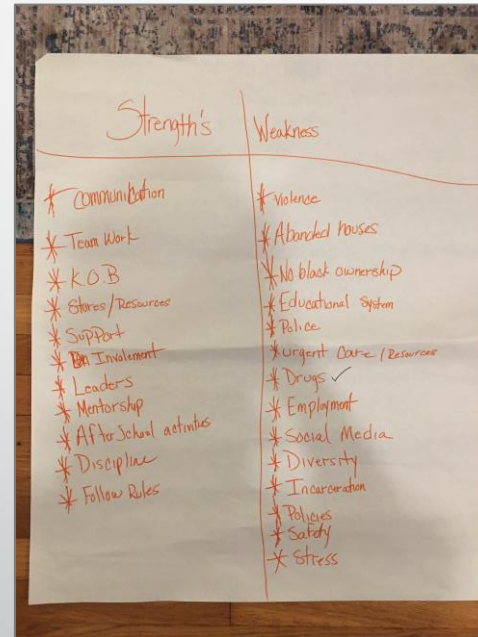 Strength's
* Communication
* Team Work
* K.O.B
* Stores/Resources
* Support
* Involvement
* Leaders
* Mentorship
* After School activities
* Discipline
* Follow Rules
Weakness
* Violence
* Abanded houses
* No black ownership
* Educational System
* Police
* Urgent Care / Resources
* Drugs ✓
* Employment
* Social Media
* Diversity
* Incarceration
* Policies
* Safety
* Stress